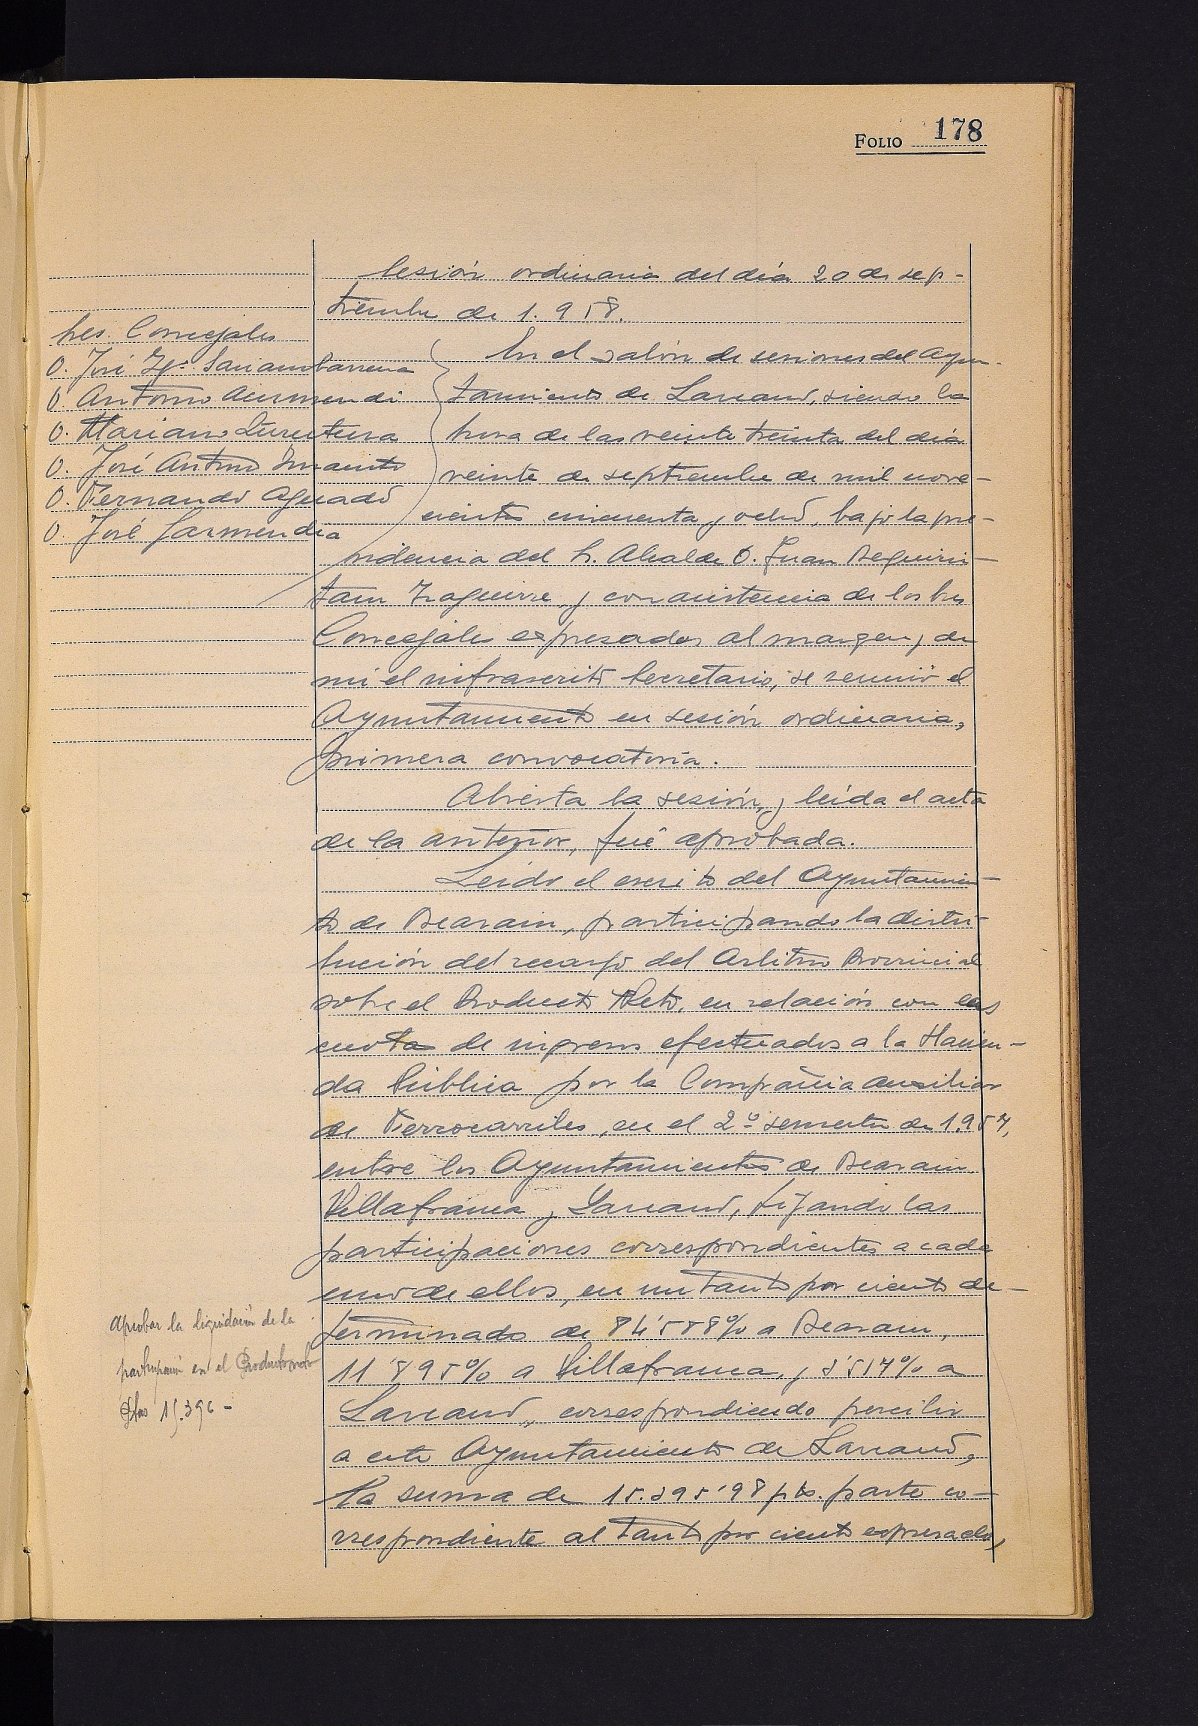 FOLIO 178
Sesión ordinaria del día 20 de sep-
tiembre de 1.958.
Sres. Concejales
D. José Iº. Sariambarrena
D. Antonio Aurmendi
D. Mariano Zurutuza
D. José Antonio
D. Fernando Aguado
D. José Garmendia
En el salón de sesiones del Ayun-
tamiento de Lazcano, siendo la
hora de las veinte treinta del día
veinte de septiembre de mil nove-
cientos cincuenta y ocho, bajo la pre-
sidencia del Sr. Alcalde D. Juan Beguiris-
tain Izaguirre, y con asistencia de los Sres
Concejales expresados al margen, y de
mi el infrascrito Secretario, se reunió el
Ayuntamiento en sesión ordinaria,
primera convocatoria.
Abierta la sesión, y leída el acta
de la anterior, fué aprobada.
Leído el escrito del Ayuntamien-
to de Beasain, participando la distri-
bución del recargo del Arbitrio Provincial
sobre el Producto Neto, en relación con las
cuotas de ingresos efectuados a la Hacien-
da Pública por la Compañia Auxiliar
de Ferrocarriles, en el 2º semestre de 1.957,
entre los Ayuntamientos de Beasain
Villafranca y Lazcano, fijando las
participaciones correspondientes a cada
uno de ellos, en un tanto por ciento de-
terminado de 84'588% a Beasain,
11'895% a Villafranca, y 3'517% a
Lazcano, correspondiendo percibir
a este Ayuntamiento de Lazcano,
la suma de 15.395'98 pts. parte co-
rrespondiente al tanto por ciento expresado,
Aprobar la liquidación de la
participación en el Producto neto
Ptas 15.396 -